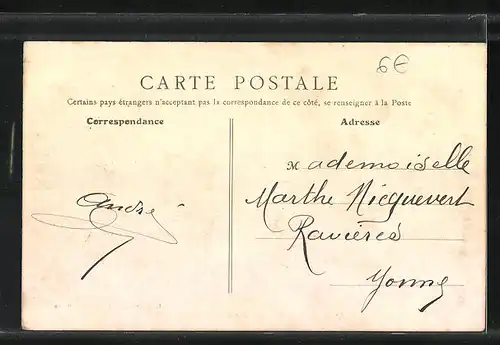 6€
CARTE POSTALE
Certains pays étrangers n'acceptant pas la correspondance de ce côté, se renseigner à la Poste
Correspondance
Adresse
Mademoiselle
Marthe Nicquevert
Ravières
Yonne
André